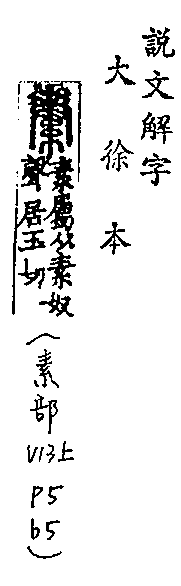 說文解字
大徐本
素屬从素奴
聲居玉切
(素部
V13上
P5
b5)